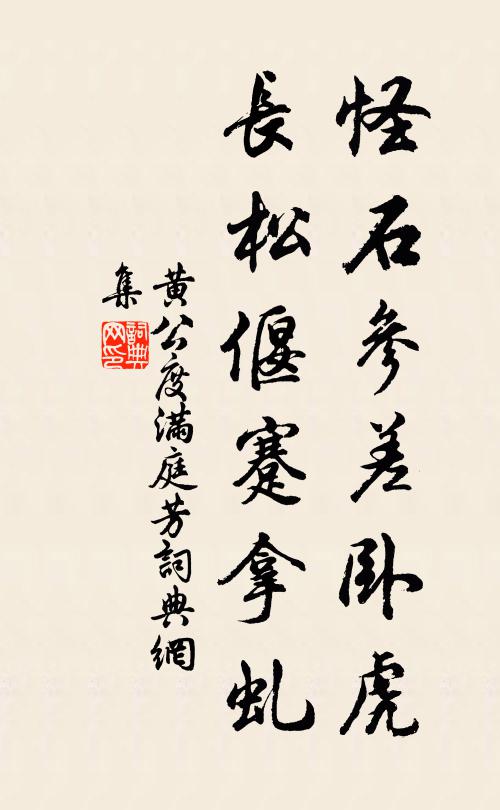 怪石參差卧虎
長松偃蹇拿虬
黄公度滿庭芳詞典網
集
詞典網印